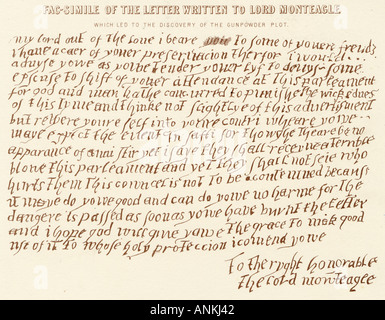 FAC-SIMILE OF THE LETTER WRITTEN TO LORD MONTEAGLE
WHICH LED TO THE DISCOVERY OF THE GUNPOWDER PLOT.
my lord out of the loue i beare To some of youere frends
i haue a caer of youer preseruacion therfor i would
aduyse yowe as yowe tender youer lyf To deuys some
epscuse to shift of youer attendance at This parleament
for god and man hathe concurred to punishe the wickednes
of this tyme and thinke not slightlye of this aduertisment
but retyere youre self into youre contri wheare yowe
maye expect the euent in safti for thowghe theare be no
apparance of anni stir yet i saye they shall receyue a terrible
blowe this parleament and yet they shall not seie who
hurts them This councel is not to be acontemned because
it maye do yowe good and can do yowe no harme for the
dangere is passed as soon as yowe haue burnt the letter
and i hope god will giue yowe the grace to mak good
use of it To whose holy proteccion i comend yowe
To the ryght honorable
the lord monteagle
alamy
www.alamy.com - ANKJ42